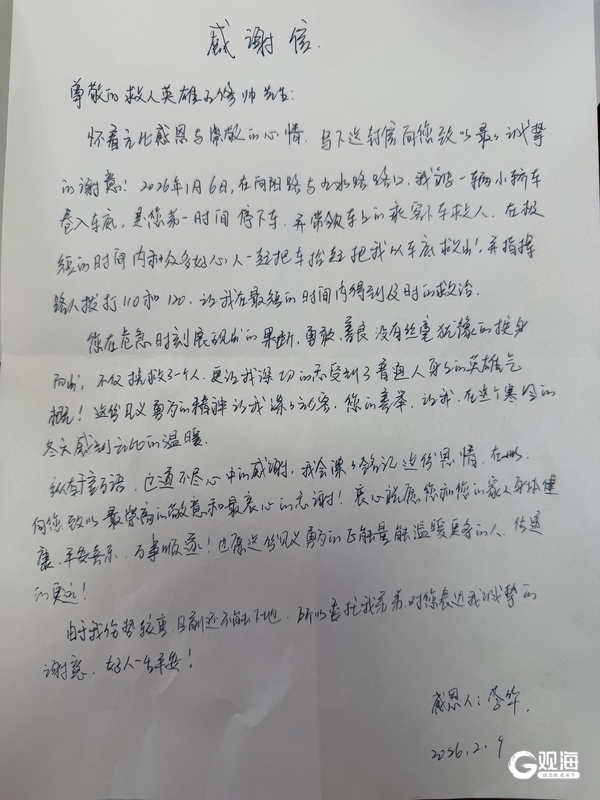 感谢信.
尊敬的救人英雄孙修帅先生:
怀着无比感恩与崇敬的心情,写下这封信向您致以最诚挚
的谢意!2026年1月6日,在向阳路与九水路路口,我被一辆小轿车
卷入车底,是您第一时间停下车,并带领车上的乘客下车救人,在极
短的时间内和众多好心人一起把车抬起把我从车底救出!并指挥
路人拨打110和120,让我在最短的时间内得到及时的救治.
您在危急时刻展现出的果断、勇敢、善良,没有丝毫犹豫的挺身
而出,不仅挽救了一个人,更让我深切的感受到了普通人身上的英雄气
概!这份见义勇为的精神让我深深动容,您的善举,让我,在这个寒冷的
冬天感到无比的温暖.
纵有千言万语,也道不尽心中的感谢,我会深深铭记这份恩情,在此,
向您致以最崇高的敬意和最衷心的感谢!衷心祝愿您和您的家人身体健
康、平安喜乐、万事顺遂!也愿这份见义勇为的正能量能温暖更多的人,传递
的更远!
由于我伤势较重,目前还不能下地,所以委托我弟弟对您表达我诚挚的
谢意,好人一生平安!
感恩人:李华
2026.2.9
观海